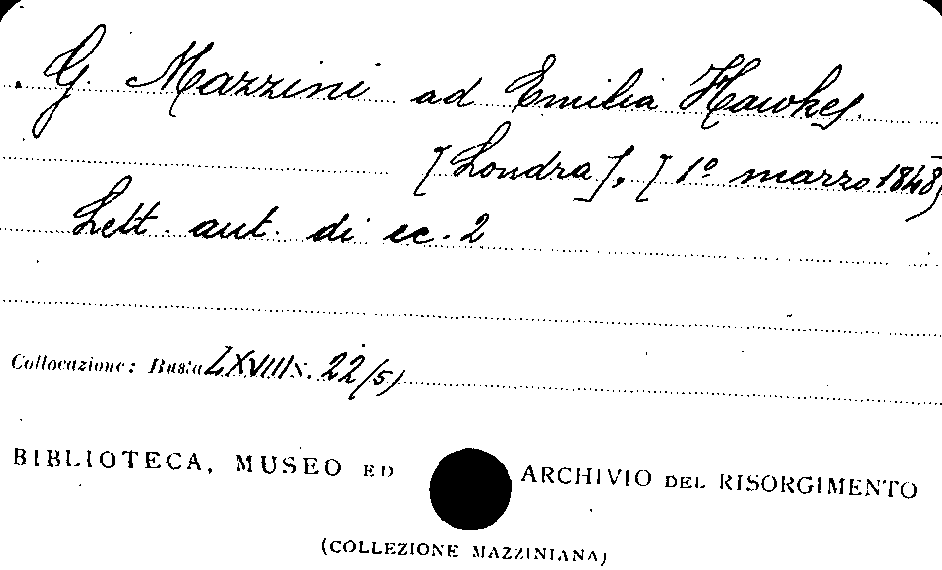 G. Mazzini ad Emilia Hawkes.
[Londra], [1º marzo 1848]
Lett. aut. di cc. 2
Collocazione: Busta LXVIII N. 22/5)
BIBLIOTECA, MUSEO ED ARCHIVIO DEL RISORGIMENTO
(COLLEZIONE MAZZINIANA)